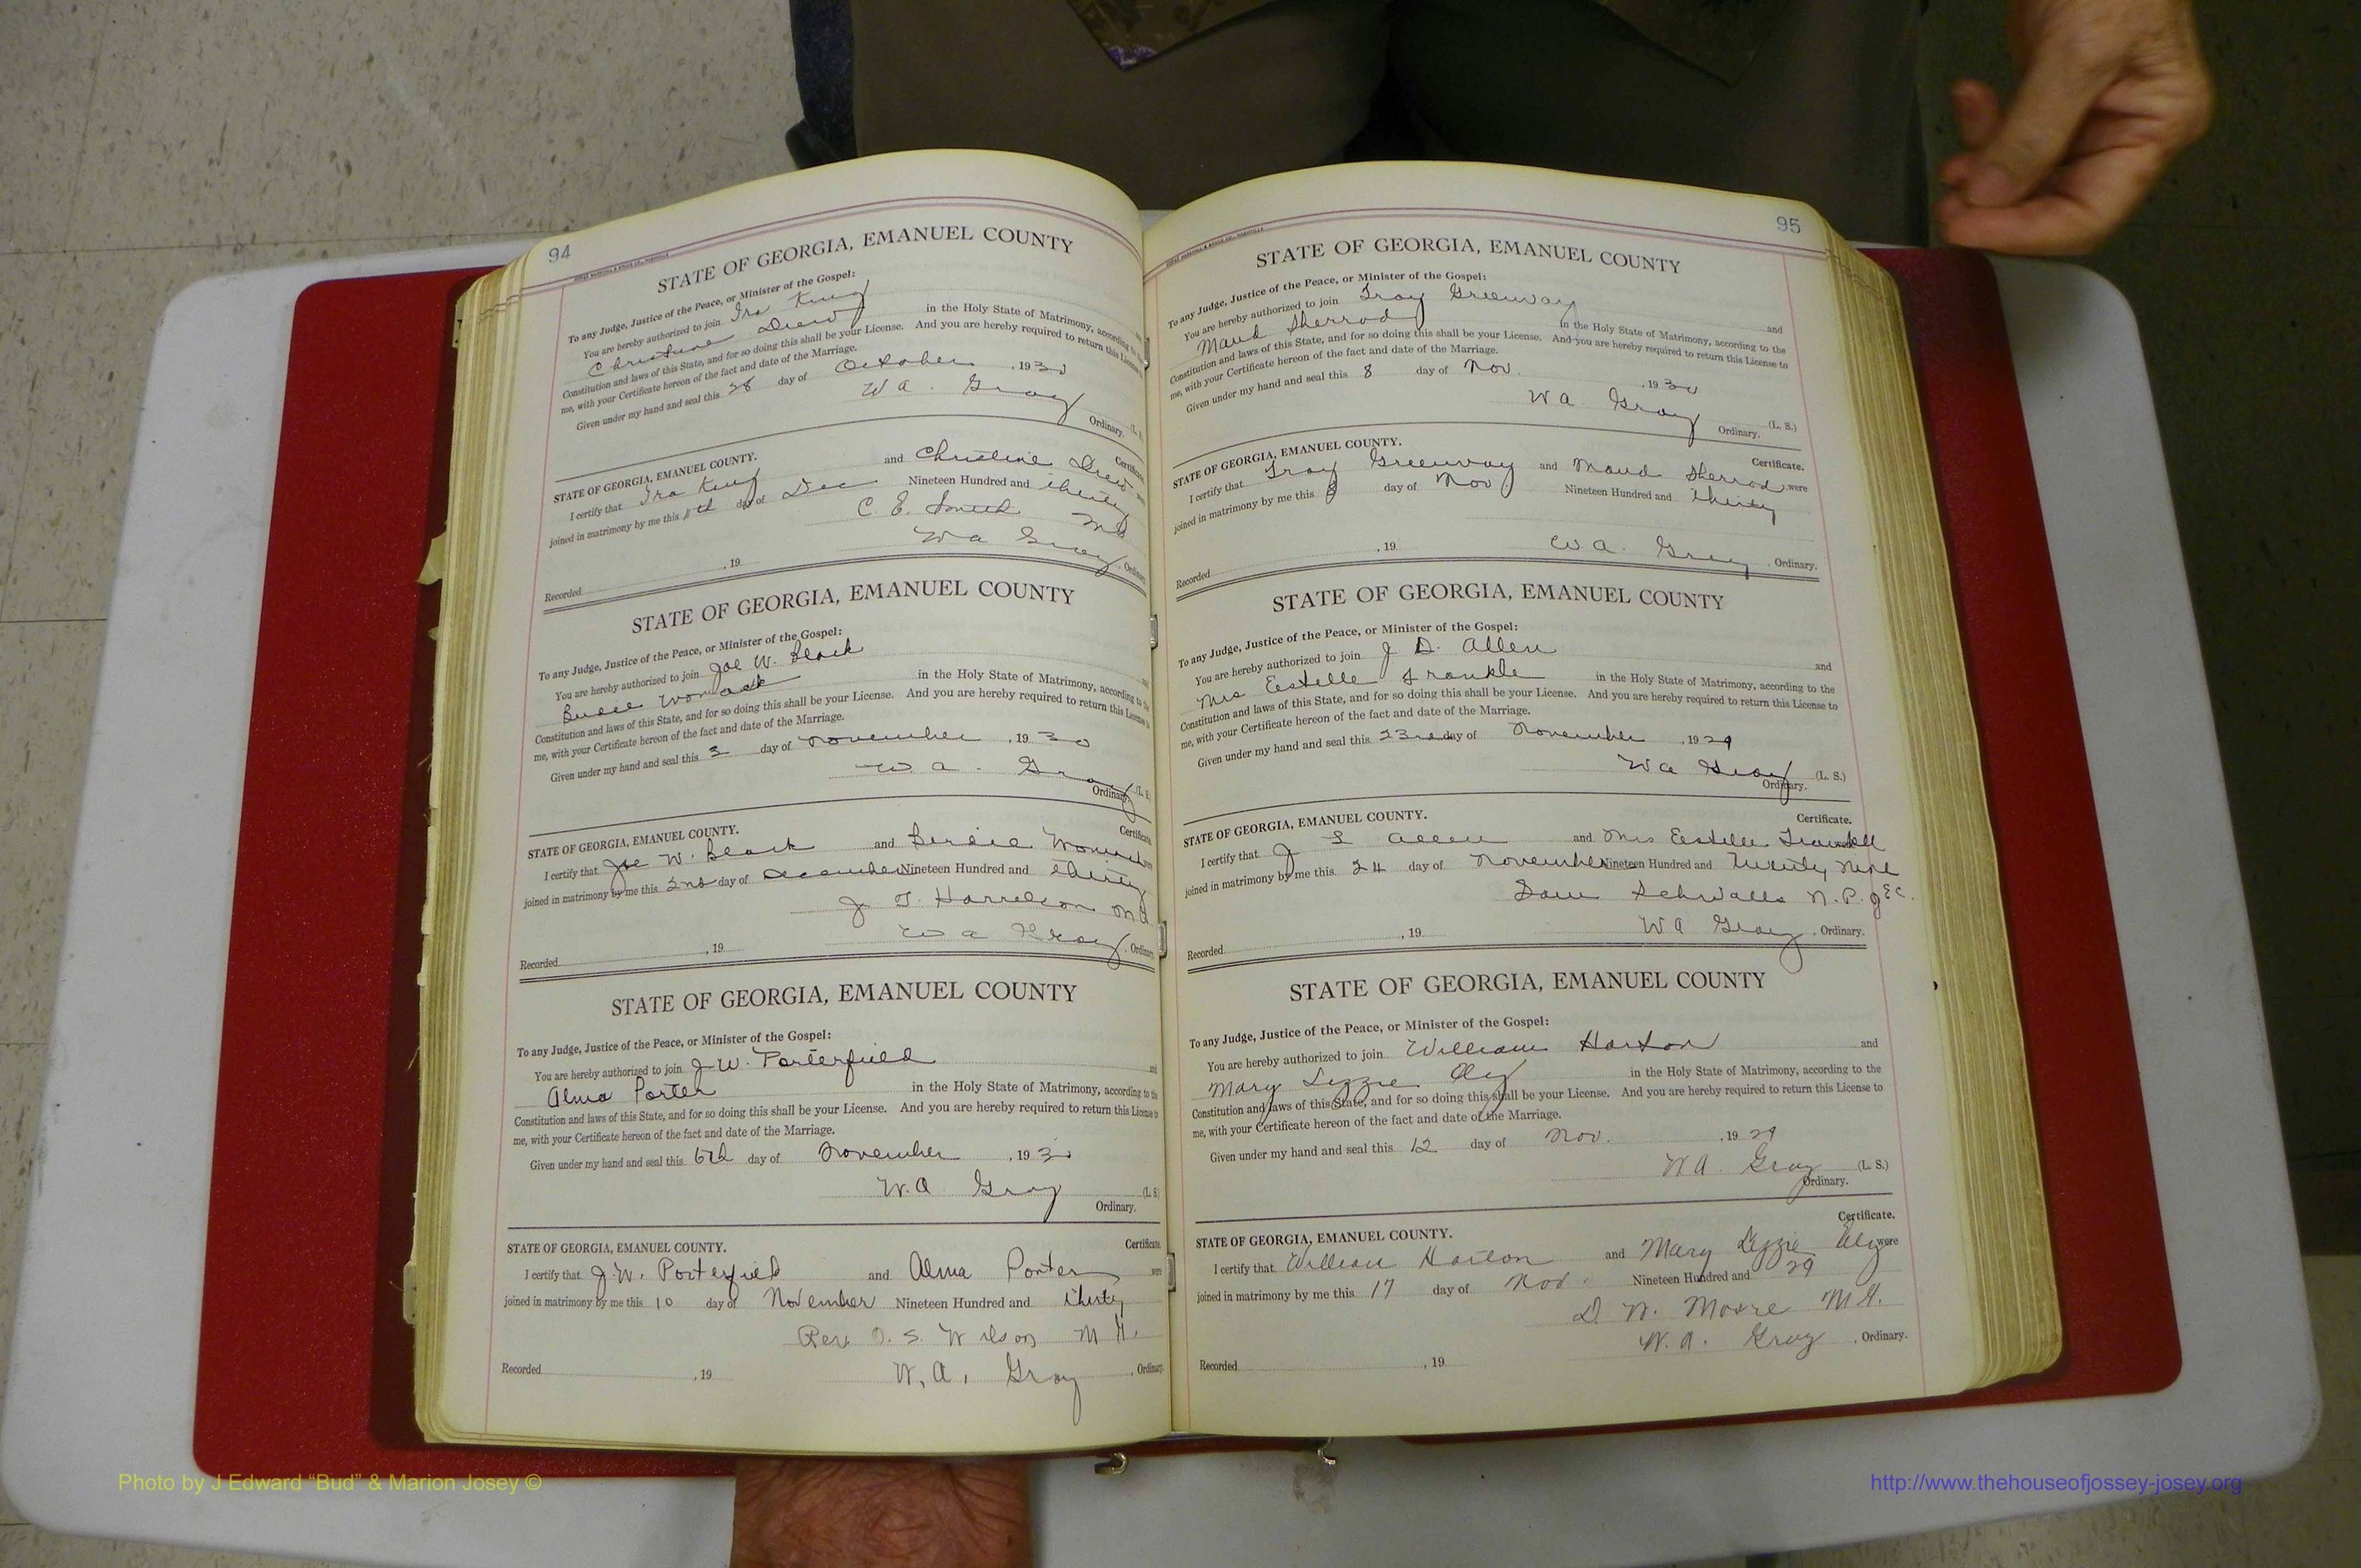 94
STATE OF GEORGIA, EMANUEL COUNTY
To any Judge, Justice of the Peace, or Minister of the Gospel:
You are hereby authorized to join Ira King
Christine Drew in the Holy State of Matrimony, according to the
Constitution and laws of this State, and for so doing this shall be your License. And you are hereby required to return this License
me, with your Certificate hereon of the fact and date of the Marriage.
Given under my hand and seal this 28 day of October , 1930
W A. Gray (L. S.
Ordinary.
Certificate
STATE OF GEORGIA, EMANUEL COUNTY.
I certify that Ira King and Christine Drew
joined in matrimony by me this day of Dec Nineteen Hundred and thirty
C. E. Smith
W a Gray , Ordinary
Recorded , 19
STATE OF GEORGIA, EMANUEL COUNTY
To any Judge, Justice of the Peace, or Minister of the Gospel:
You are hereby authorized to join Joe W. Black
Womack in the Holy State of Matrimony, according to the
Constitution and laws of this State, and for so doing this shall be your License. And you are hereby required to return this License
me, with your Certificate hereon of the fact and date of the Marriage.
Given under my hand and seal this 3 day of November , 1930
W. a. Gray (L. S
Ordinary.
Certificate
STATE OF GEORGIA, EMANUEL COUNTY.
I certify that Joe W. Black and Birdie Womack
joined in matrimony by me this 2nd day of December Nineteen Hundred and thirty
J. T. Harrelson
W a Gray , Ordinary
Recorded , 19
STATE OF GEORGIA, EMANUEL COUNTY
To any Judge, Justice of the Peace, or Minister of the Gospel:
You are hereby authorized to join J. W. Porterfield and
Alma Porter in the Holy State of Matrimony, according to the
Constitution and laws of this State, and for so doing this shall be your License. And you are hereby required to return this License to
me, with your Certificate hereon of the fact and date of the Marriage.
Given under my hand and seal this 6th day of November , 1930
W. A Gray (L. S.
Ordinary.
Certificate
STATE OF GEORGIA, EMANUEL COUNTY.
I certify that J. W. Porterfield and Alma Porter were
joined in matrimony by me this 10 day of November Nineteen Hundred and thirty
Rev. O. S. Wilson M. G.
W. A. Gray , Ordinary
Recorded , 19
95
STATE OF GEORGIA, EMANUEL COUNTY
To any Judge, Justice of the Peace, or Minister of the Gospel:
You are hereby authorized to join Troy Greenway and
Maud Sherrod in the Holy State of Matrimony, according to the
Constitution and laws of this State, and for so doing this shall be your License. And you are hereby required to return this License to
me, with your Certificate hereon of the fact and date of the Marriage.
Given under my hand and seal this 8 day of Nov. , 1930
W A. Gray (L. S.)
Ordinary.
Certificate.
STATE OF GEORGIA, EMANUEL COUNTY.
I certify that Troy Greenway and Maud Sherrod were
joined in matrimony by me this 8 day of Nov Nineteen Hundred and thirty
W. A. Gray , Ordinary.
Recorded , 19
STATE OF GEORGIA, EMANUEL COUNTY
To any Judge, Justice of the Peace, or Minister of the Gospel:
You are hereby authorized to join J. D. Allen and
Mrs Estelle in the Holy State of Matrimony, according to the
Constitution and laws of this State, and for so doing this shall be your License. And you are hereby required to return this License to
me, with your Certificate hereon of the fact and date of the Marriage.
Given under my hand and seal this 23rd day of November , 1929
W a Gray (L. S.)
Ordinary.
Certificate.
STATE OF GEORGIA, EMANUEL COUNTY.
I certify that J Allen and Mrs Estelle
joined in matrimony by me this 24 day of November Nineteen Hundred and Twenty Nine
Sam Schwalls N. P.
W A Gray , Ordinary.
Recorded , 19
STATE OF GEORGIA, EMANUEL COUNTY
To any Judge, Justice of the Peace, or Minister of the Gospel:
You are hereby authorized to join William Horton and
Mary Lizzie Oly in the Holy State of Matrimony, according to the
Constitution and laws of this State, and for so doing this shall be your License. And you are hereby required to return this License to
me, with your Certificate hereon of the fact and date of the Marriage.
Given under my hand and seal this 12 day of Nov. , 1929
W A. Gray (L. S.)
Ordinary.
Certificate.
STATE OF GEORGIA, EMANUEL COUNTY.
I certify that William Horton and Mary Lizzie Oly were
joined in matrimony by me this 17 day of Nov. Nineteen Hundred and 29
D. W. Moore M. G.
W. A. Gray , Ordinary.
Recorded , 19
Photo by J Edward “Bud” & Marion Josey ©
http://www.thehouseofjossey-josey.org